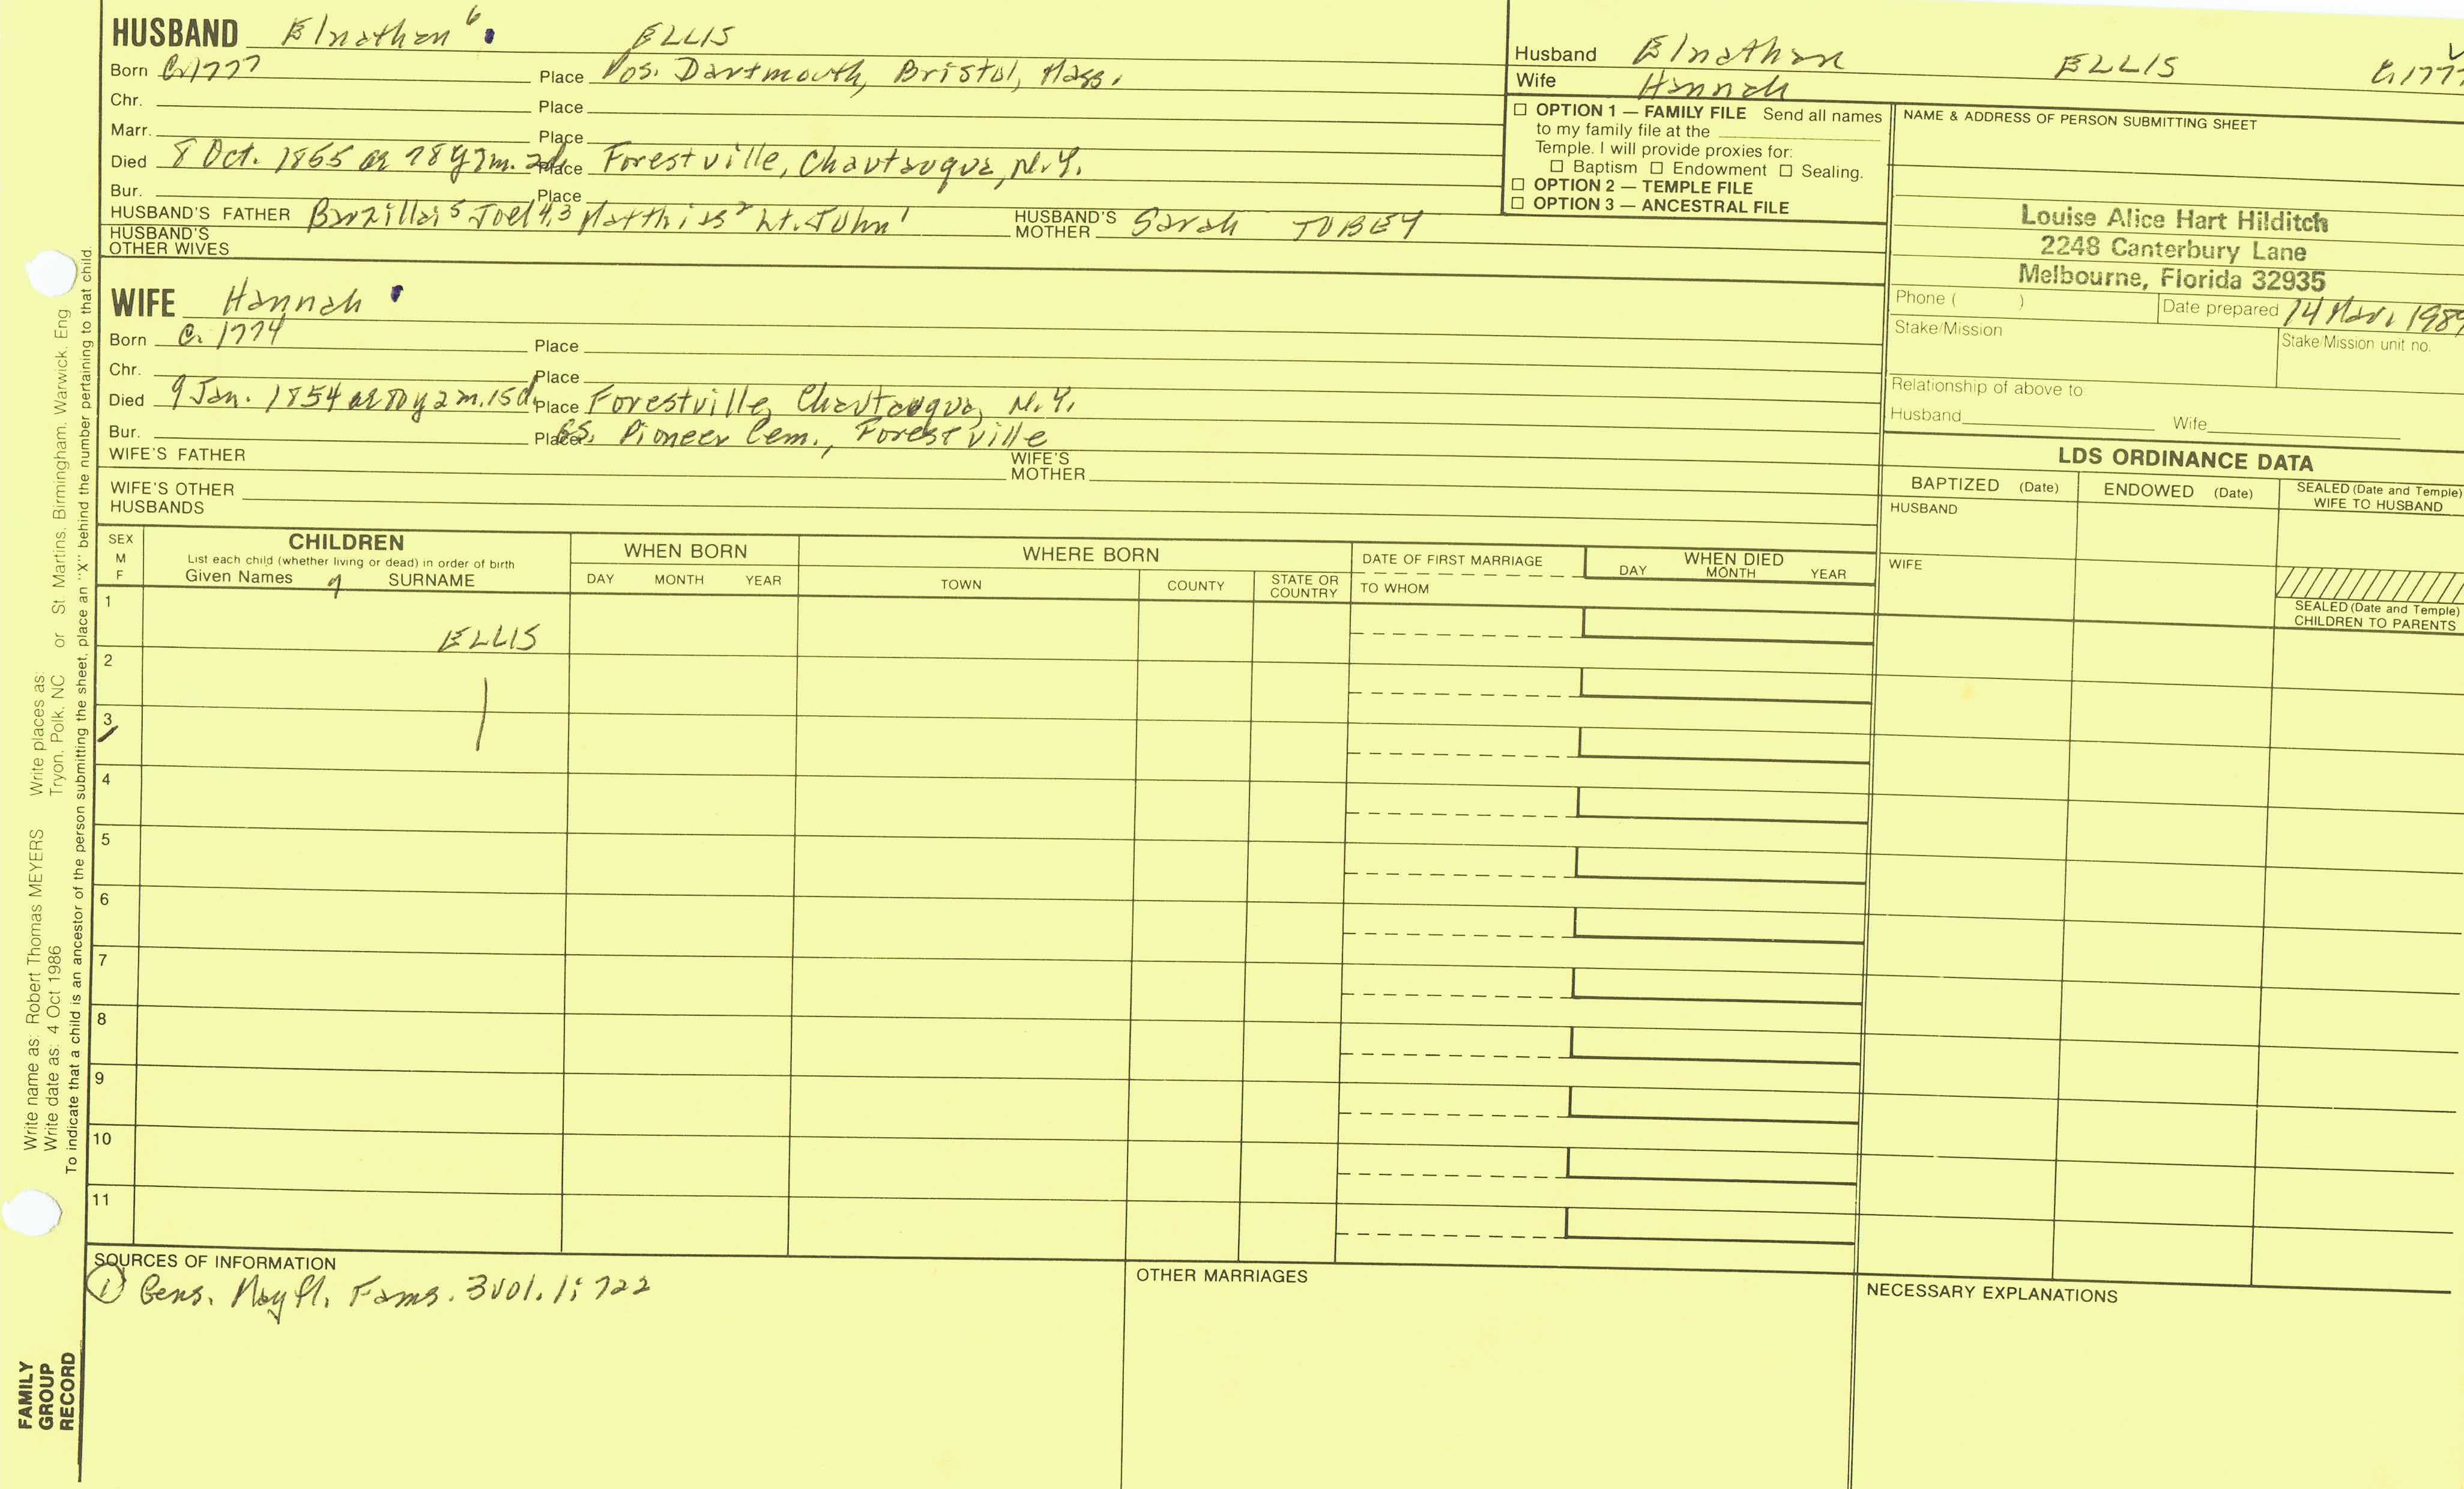 HUSBAND Elnathan 6 ELLIS
Born C. 1777 Place Pos. Dartmouth, Bristol, Mass.
Chr. Place
Marr. Place
Died 8 Oct. 1865 ae 78y 7m. 2d. Place Forestville, Chautauqua, N.Y.
Bur. Place
HUSBAND'S FATHER Barzillai 5 Joel 4,3 Matthias 2 Lt. John 1 HUSBAND'S MOTHER Sarah TOBEY
HUSBAND'S OTHER WIVES
WIFE Hannah
Born C. 1774 Place
Chr. Place
Died 9 Jan. 1854 ae 80y 2m. 15d. Place Forestville, Chautauqua, N.Y.
Bur. Place GS. Pioneer Cem., Forestville
WIFE'S FATHER WIFE'S MOTHER
WIFE'S OTHER HUSBANDS
Husband Elnathan ELLIS C. 1777
Wife Hannah
☐ OPTION 1 — FAMILY FILE Send all names
to my family file at the
Temple. I will provide proxies for:
☐ Baptism ☐ Endowment ☐ Sealing.
☐ OPTION 2 — TEMPLE FILE
☐ OPTION 3 — ANCESTRAL FILE
NAME & ADDRESS OF PERSON SUBMITTING SHEET
Louise Alice Hart Hilditch
2248 Canterbury Lane
Melbourne, Florida 32935
Phone ( ) Date prepared 14 Mar. 1989
Stake/Mission Stake/Mission unit no.
Relationship of above to
Husband Wife
LDS ORDINANCE DATA
BAPTIZED (Date) ENDOWED (Date) SEALED (Date and Temple) WIFE TO HUSBAND
HUSBAND
WIFE
SEALED (Date and Temple)
CHILDREN TO PARENTS
SEX M F
CHILDREN
List each child (whether living or dead) in order of birth
Given Names 7 SURNAME
WHEN BORN
DAY MONTH YEAR
WHERE BORN
TOWN COUNTY STATE OR COUNTRY
DATE OF FIRST MARRIAGE
TO WHOM
WHEN DIED
DAY MONTH YEAR
1 ELLIS
2
3
4
5
6
7
8
9
10
11
SOURCES OF INFORMATION
1 Gens. Mayfl. Fams. 3 vol. 1: 722
OTHER MARRIAGES
NECESSARY EXPLANATIONS
Write name as: Robert Thomas MEYERS Write places as: Tryon, Polk, NC or St Martins, Birmingham, Warwick, Eng
Write date as: 4 Oct 1986
To indicate that a child is an ancestor of the person submitting the sheet, place an "X" behind the number pertaining to that child.
FAMILY
GROUP
RECORD